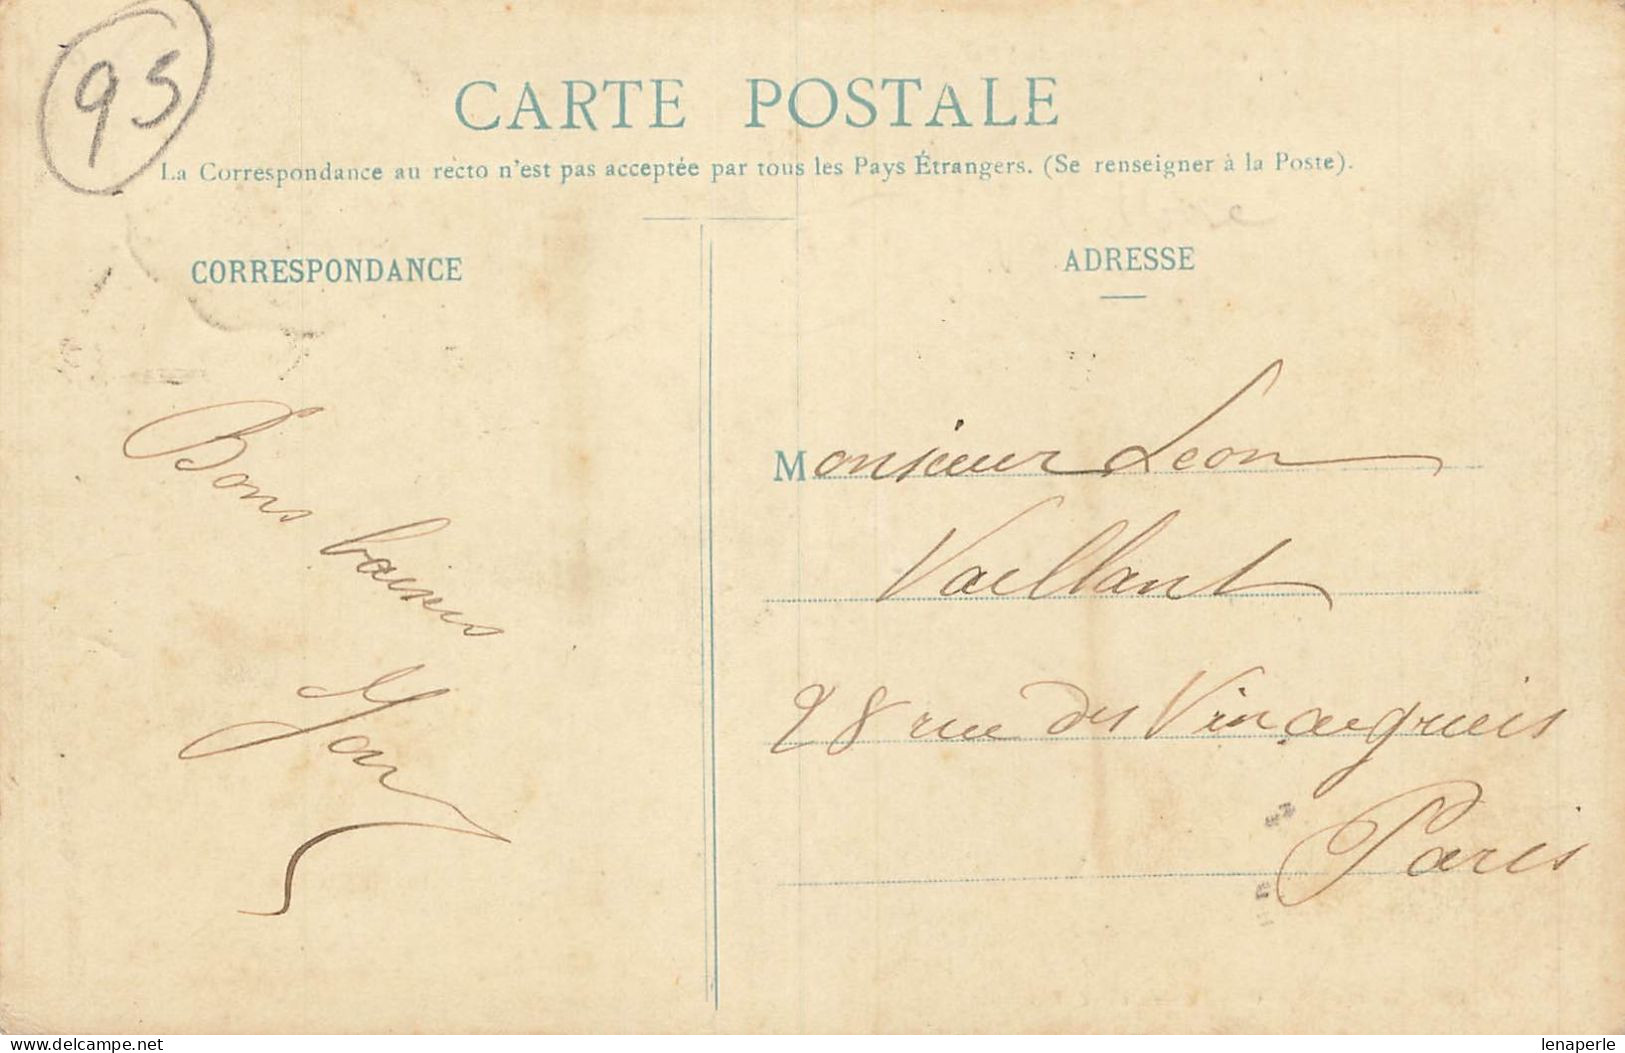 95
CARTE POSTALE
La Correspondance au recto n'est pas acceptée par tous les Pays Étrangers. (Se renseigner à la Poste).
CORRESPONDANCE
Bons baisers
ADRESSE
Monsieur Leon
Vaillant
28 rue des Vinaegriers
Paris
delcampe.net
lenaperle